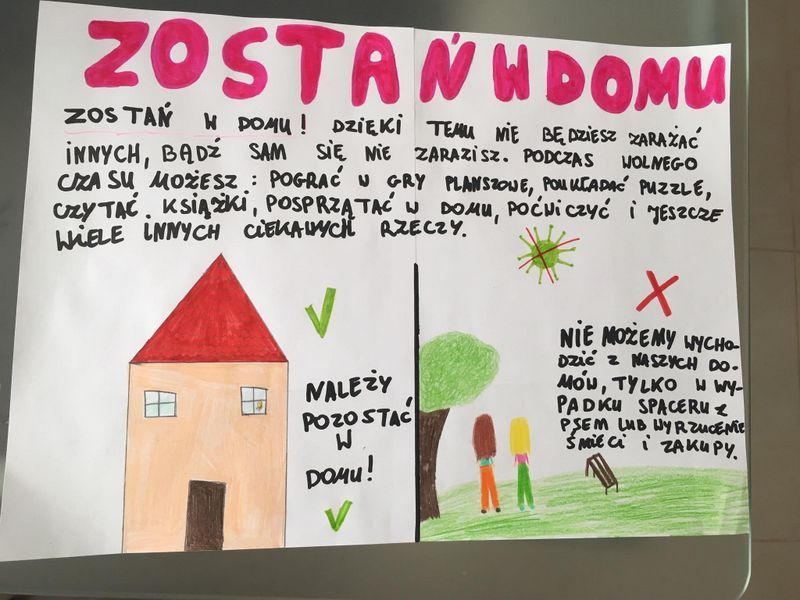 ZOSTAŃ W DOMU
ZOSTAŃ W DOMU! DZIĘKI TEMU NIE BĘDZIESZ ZARAŻAĆ
INNYCH, BĄDŹ SAM SIĘ NIE ZARAZISZ. PODCZAS WOLNEGO
CZASU MOŻESZ: POGRAĆ W GRY PLANSZOWE, POUKŁADAĆ PUZZLE,
CZYTAĆ KSIĄŻKI, POSPRZĄTAĆ W DOMU, POĆWICZYĆ I JESZCZE
WIELE INNYCH CIEKAWYCH RZECZY.
NALEŻY
POZOSTAĆ
W
DOMU!
NIE MOŻEMY WYCHO-
DZIĆ Z NASZYCH DO-
MÓW, TYLKO W WY-
PADKU SPACERU Z
PSEM LUB WYRZUCENIE
ŚMIECI I ZAKUPY.